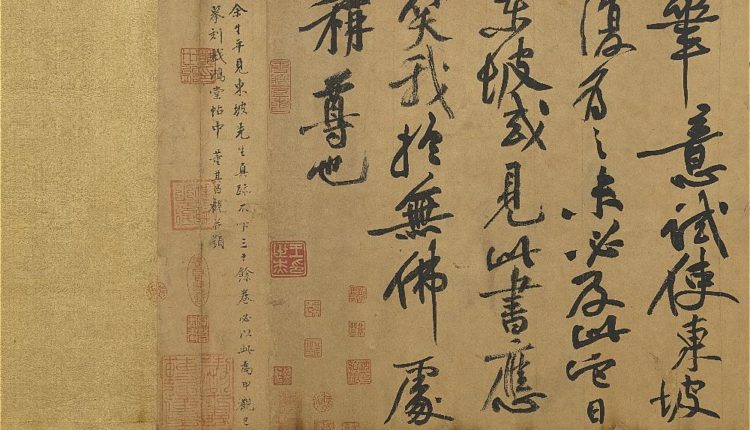 筆意試使東坡
復為之未必及此它日
東坡或見此書應
笑我於無佛處
稱尊也
余生平見東坡先生真跡不下三十餘卷必以此為甲觀已
摹刻戲鴻堂帖中 董其昌觀并題